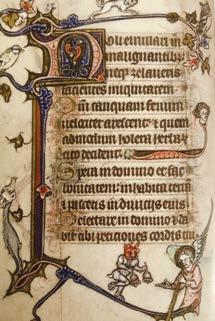 Noli emulari in
malignantib;
neq; zelaveris
facientes iniquitatem
Qm̄ tanquam fenum
velociter arescent & quem
admodum holera herba
cito decident
Spera in domino et fac
bonitatem & inhabita terrā
& pasceris in diviciis eius
Delectare in domino & da
bit tibi peticiones cordis tui